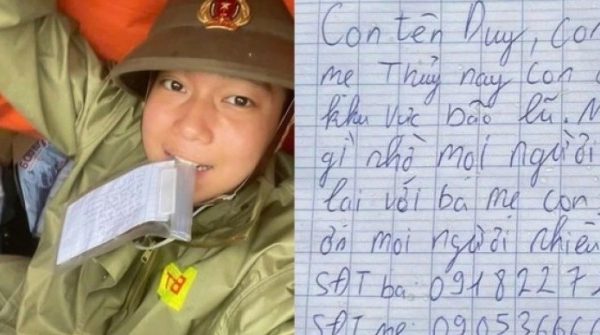 Con tên Duy, con
mẹ Thủy nay con
khu vực bão lũ. N
gì nhờ mọi người
lại với ba mẹ con
ơn mọi người nhiều
SĐT ba: 0918227
SĐT mẹ: 09053666